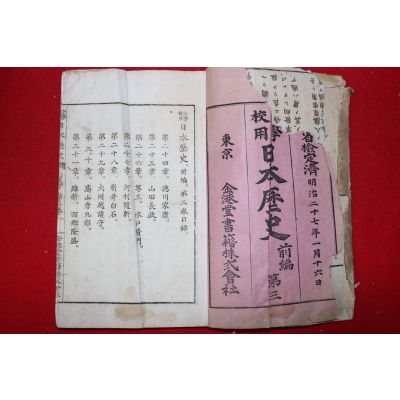 省檢定濟 明治二十七年一月十六日
學校用 日本歴史 前編 第三
東京 金港堂書籍株式會社
小學校用 日本歴史 前編 第三卷目錄
第二十四章、德川家康。
第二十五章、山田長政。
第二十六章、尊王、水戸黄門。
第二十七章、河村瑞軒。
第二十八章、新井白石。
第二十九章、大岡越前守。
第三十章、高山彦九郎。
第三十一章、維新、西郷隆盛。